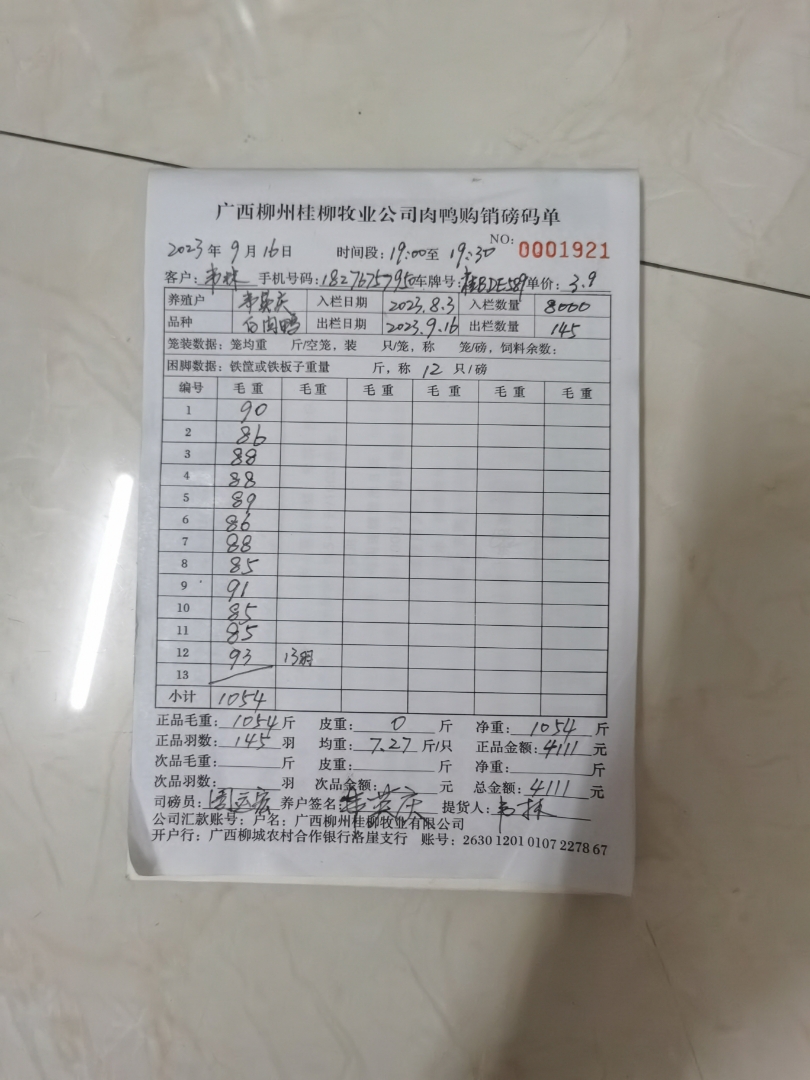 广西柳州桂柳牧业公司肉鸭购销磅码单
NO: 0001921
2023年 9月16日 时间段: 19:00至 19:30
客户: 韦林 手机号码: 18276757950 车牌号: 桂BDE589 单价: 3.9
养殖户 韦英庆 入栏日期 2023.8.3 入栏数量 8000
品种 白肉鸭 出栏日期 2023.9.16 出栏数量 145
笼装数据: 笼均重 斤/空笼, 装 只/笼, 称 笼/磅, 饲料余数:
困脚数据: 铁筐或铁板子重量 斤, 称 12 只/磅
编号 毛重 毛重 毛重 毛重 毛重 毛重
1 90
2 86
3 88
4 88
5 89
6 86
7 88
8 85
9 91
10 85
11 85
12 93 13羽
13
小计 1054
正品毛重: 1054斤 皮重: 0 斤 净重: 1054 斤
正品羽数: 145 羽 均重: 7.27 斤/只 正品金额: 4111 元
次品毛重: 斤 皮重: 斤 净重: 斤
次品羽数: 羽 次品金额: 元 总金额: 4111 元
司磅员: 养户签名 韦英庆 提货人: 韦林
公司汇款账号: 户名: 广西柳州桂柳牧业有限公司
开户行: 广西柳城农村合作银行洛崖支行 账号: 2630 1201 0107 2278 67